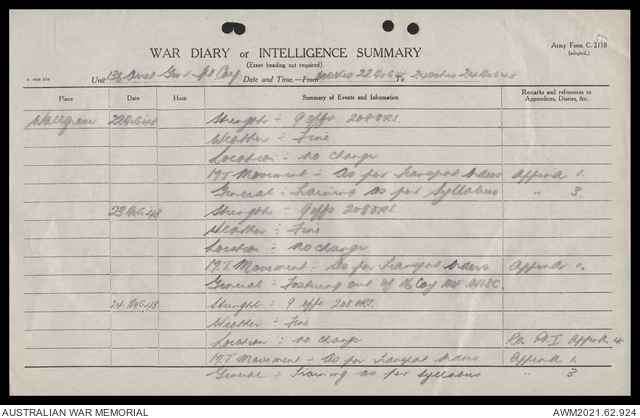 Army Form C. 2118
(adapted.)
WAR DIARY or INTELLIGENCE SUMMARY
(Erase heading not required).
Unit 136 Coy Date and Time.—From 22 To 2400hrs 24 Oct 43
Place Date Hour Summary of Events and Information Remarks and references to Appendices, Diaries, &c.
Wallgrove 22 Oct 43 Strength :- 9 offs 208 ORS.
Weather :- Fine
Location :- no change
M.T Movement :- As per Transport Orders Appendix 1.
General :- Training as per Syllabus " 3.
23 Oct 43 Strength :- 9 offs 208 ORS.
Weather :- Fine
Location :- no change
M.T Movement :- As per Transport Orders Appendix 1.
General :- out of Coy
24 Oct 43 Strength :- 9 offs 208 ORS.
Weather :- Fine
Location :- no change Append. 4
M.T Movement :- As per Transport Orders Append. 1.
General :- Training as per Syllabus " 3
AUSTRALIAN WAR MEMORIAL AWM2021.62.924